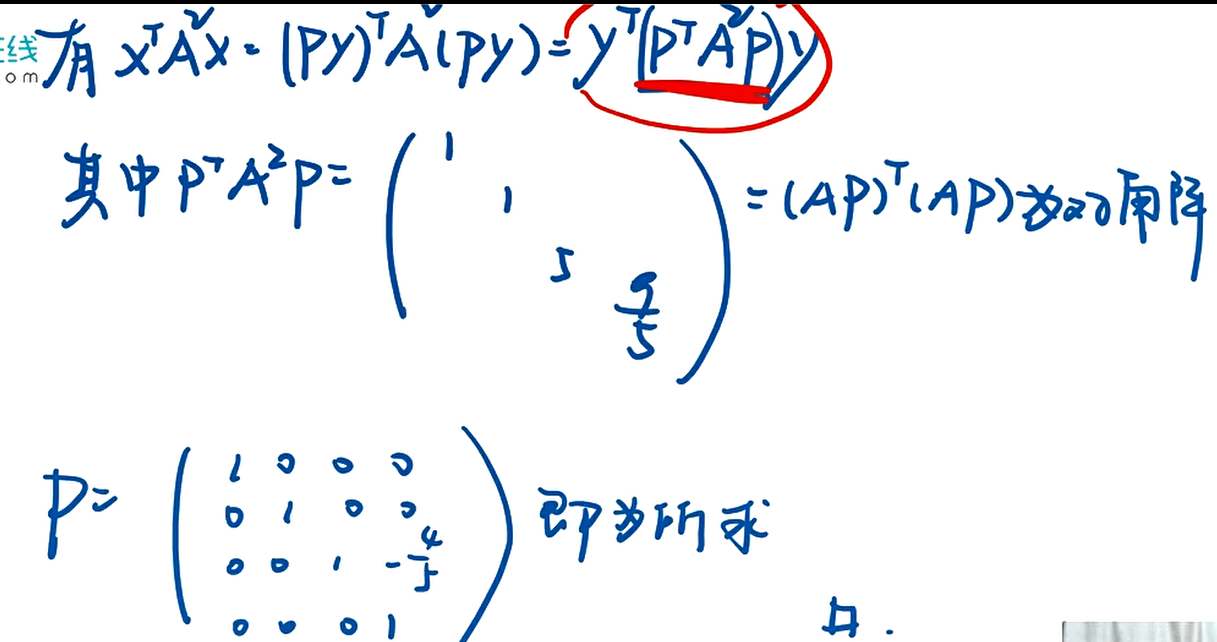 线
om
有 xᵀA²x = (Py)ᵀA²(Py) = yᵀ(PᵀA²P)y
其中 PᵀA²P = ( 1 1 5 9/5 ) = (AP)ᵀ(AP) 为对角阵
P = ( 1 0 0 0
0 1 0 0
0 0 1 -4/5
0 0 0 1 ) 即为所求